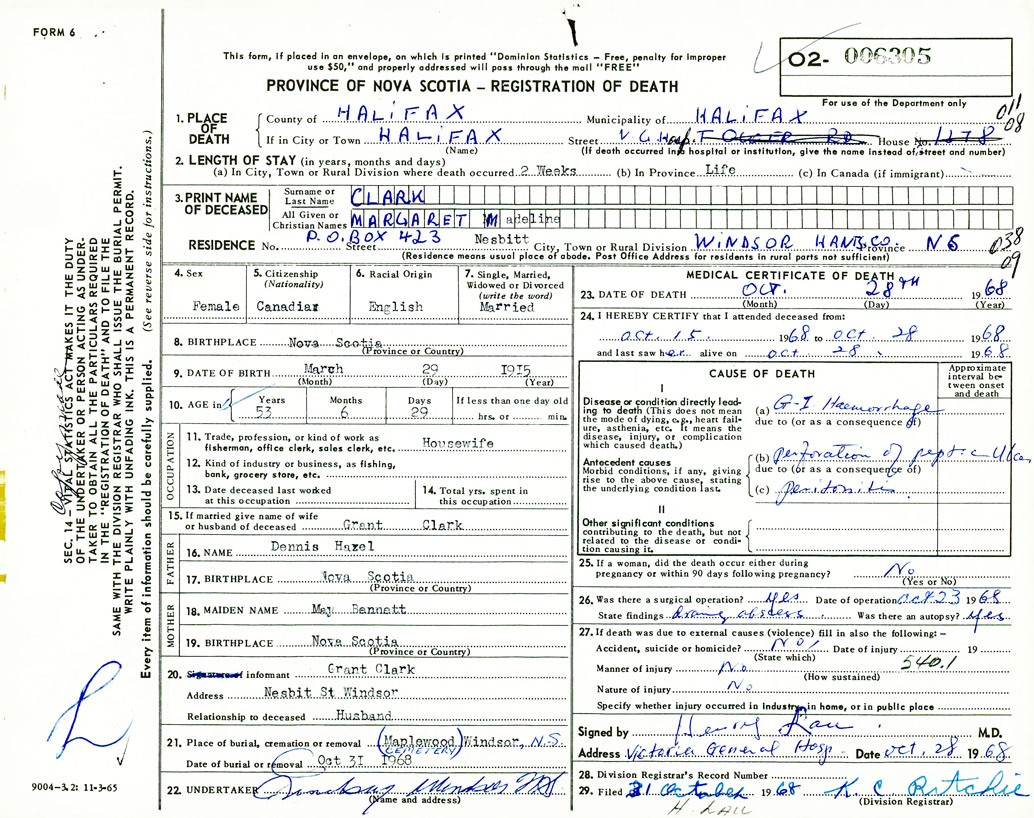 FORM 6
This form, if placed in an envelope, on which is printed "Dominion Statistics – Free, penalty for improper
use $50," and properly addressed will pass through the mail "FREE"
PROVINCE OF NOVA SCOTIA – REGISTRATION OF DEATH
O2- 006305
For use of the Department only
011
08
1. PLACE OF DEATH
County of HALIFAX Municipality of HALIFAX
If in City or Town HALIFAX Street V G Hosp. House No. 1178
(Name) (If death occurred in hospital or institution, give the name instead of street and number)
2. LENGTH OF STAY (in years, months and days)
(a) In City, Town or Rural Division where death occurred 2 Weeks (b) In Province Life (c) In Canada (if immigrant)
3. PRINT NAME OF DECEASED
Surname or Last Name CLARK
All Given or Christian Names MARGARET Madeline
RESIDENCE No. P.O. BOX 423 Street Nesbitt City, Town or Rural Division WINDSOR HANTS CO. Province NS
(Residence means usual place of abode. Post Office Address for residents in rural parts not sufficient)
038
09
4. Sex
Female
5. Citizenship
(Nationality)
Canadian
6. Racial Origin
English
7. Single, Married,
Widowed or Divorced
(write the word)
Married
8. BIRTHPLACE Nova Scotia
(Province or Country)
9. DATE OF BIRTH March 29 1915
(Month) (Day) (Year)
10. AGE in Years Months Days If less than one day old
53 6 29 hrs. or min.
OCCUPATION
11. Trade, profession, or kind of work as
fisherman, office clerk, sales clerk, etc. Housewife
12. Kind of industry or business, as fishing,
bank, grocery store, etc.
13. Date deceased last worked
at this occupation
14. Total yrs. spent in
this occupation
15. If married give name of wife
or husband of deceased Grant Clark
FATHER
16. NAME Dennis Hazel
17. BIRTHPLACE Nova Scotia
MOTHER
18. MAIDEN NAME May Bennett
19. BIRTHPLACE Nova Scotia
(Province or Country)
20. Signature of informant Grant Clark
Address Nesbit St Windsor
Relationship to deceased Husband
21. Place of burial, cremation or removal (Maplewood) Windsor, N.S.
CEMETERY
Date of burial or removal Oct 31 1968
22. UNDERTAKER Windsor NS
(Name and address)
MEDICAL CERTIFICATE OF DEATH
23. DATE OF DEATH OCT. 28TH 1968
(Month) (Day) (Year)
24. I HEREBY CERTIFY that I attended deceased from:
Oct. 15. 1968 to Oct. 28 1968
and last saw her alive on Oct 28 1968
CAUSE OF DEATH
Approximate
interval be-
tween onset
and death
I
Disease or condition directly lead-
ing to death (This does not mean
the mode of dying, e.g., heart fail-
ure, asthenia, etc. It means the
disease, injury, or complication
which caused death.)
(a) G-I Haemorrhage
due to (or as a consequence of)
Antecedent causes
Morbid conditions, if any, giving
rise to the above cause, stating
the underlying condition last.
(b) perforation of peptic Ulcer
due to (or as a consequence of)
(c) peritonitis
II
Other significant conditions
contributing to the death, but not
related to the disease or condi-
tion causing it.
25. If a woman, did the death occur either during
pregnancy or within 90 days following pregnancy? No
(Yes or No)
26. Was there a surgical operation? yes Date of operation Oct 23 1968
State findings drain abscess Was there an autopsy? yes
27. If death was due to external causes (violence) fill in also the following: –
Accident, suicide or homicide? No Date of injury 19
(State which) 540.1
Manner of injury No
(How sustained)
Nature of injury No
Specify whether injury occurred in industry, in home, or in public place
Signed by Henry Lau M.D.
Address Victoria General Hosp Date Oct. 28 1968
28. Division Registrar's Record Number
29. Filed 31 October 1968 K C Ritchie
(Division Registrar)
H. LAU
9004-3.2: 11-3-65
SEC. 14 – VITAL STATISTICS ACT MAKES IT THE DUTY
OF THE UNDERTAKER OR PERSON ACTING AS UNDER-
TAKER TO OBTAIN ALL THE PARTICULARS REQUIRED
IN THE "REGISTRATION OF DEATH" AND TO FILE THE
SAME WITH THE DIVISION REGISTRAR WHO SHALL ISSUE THE BURIAL PERMIT.
WRITE PLAINLY WITH UNFADING INK. THIS IS A PERMANENT RECORD.
Every item of information should be carefully supplied. (See reverse side for instructions.)